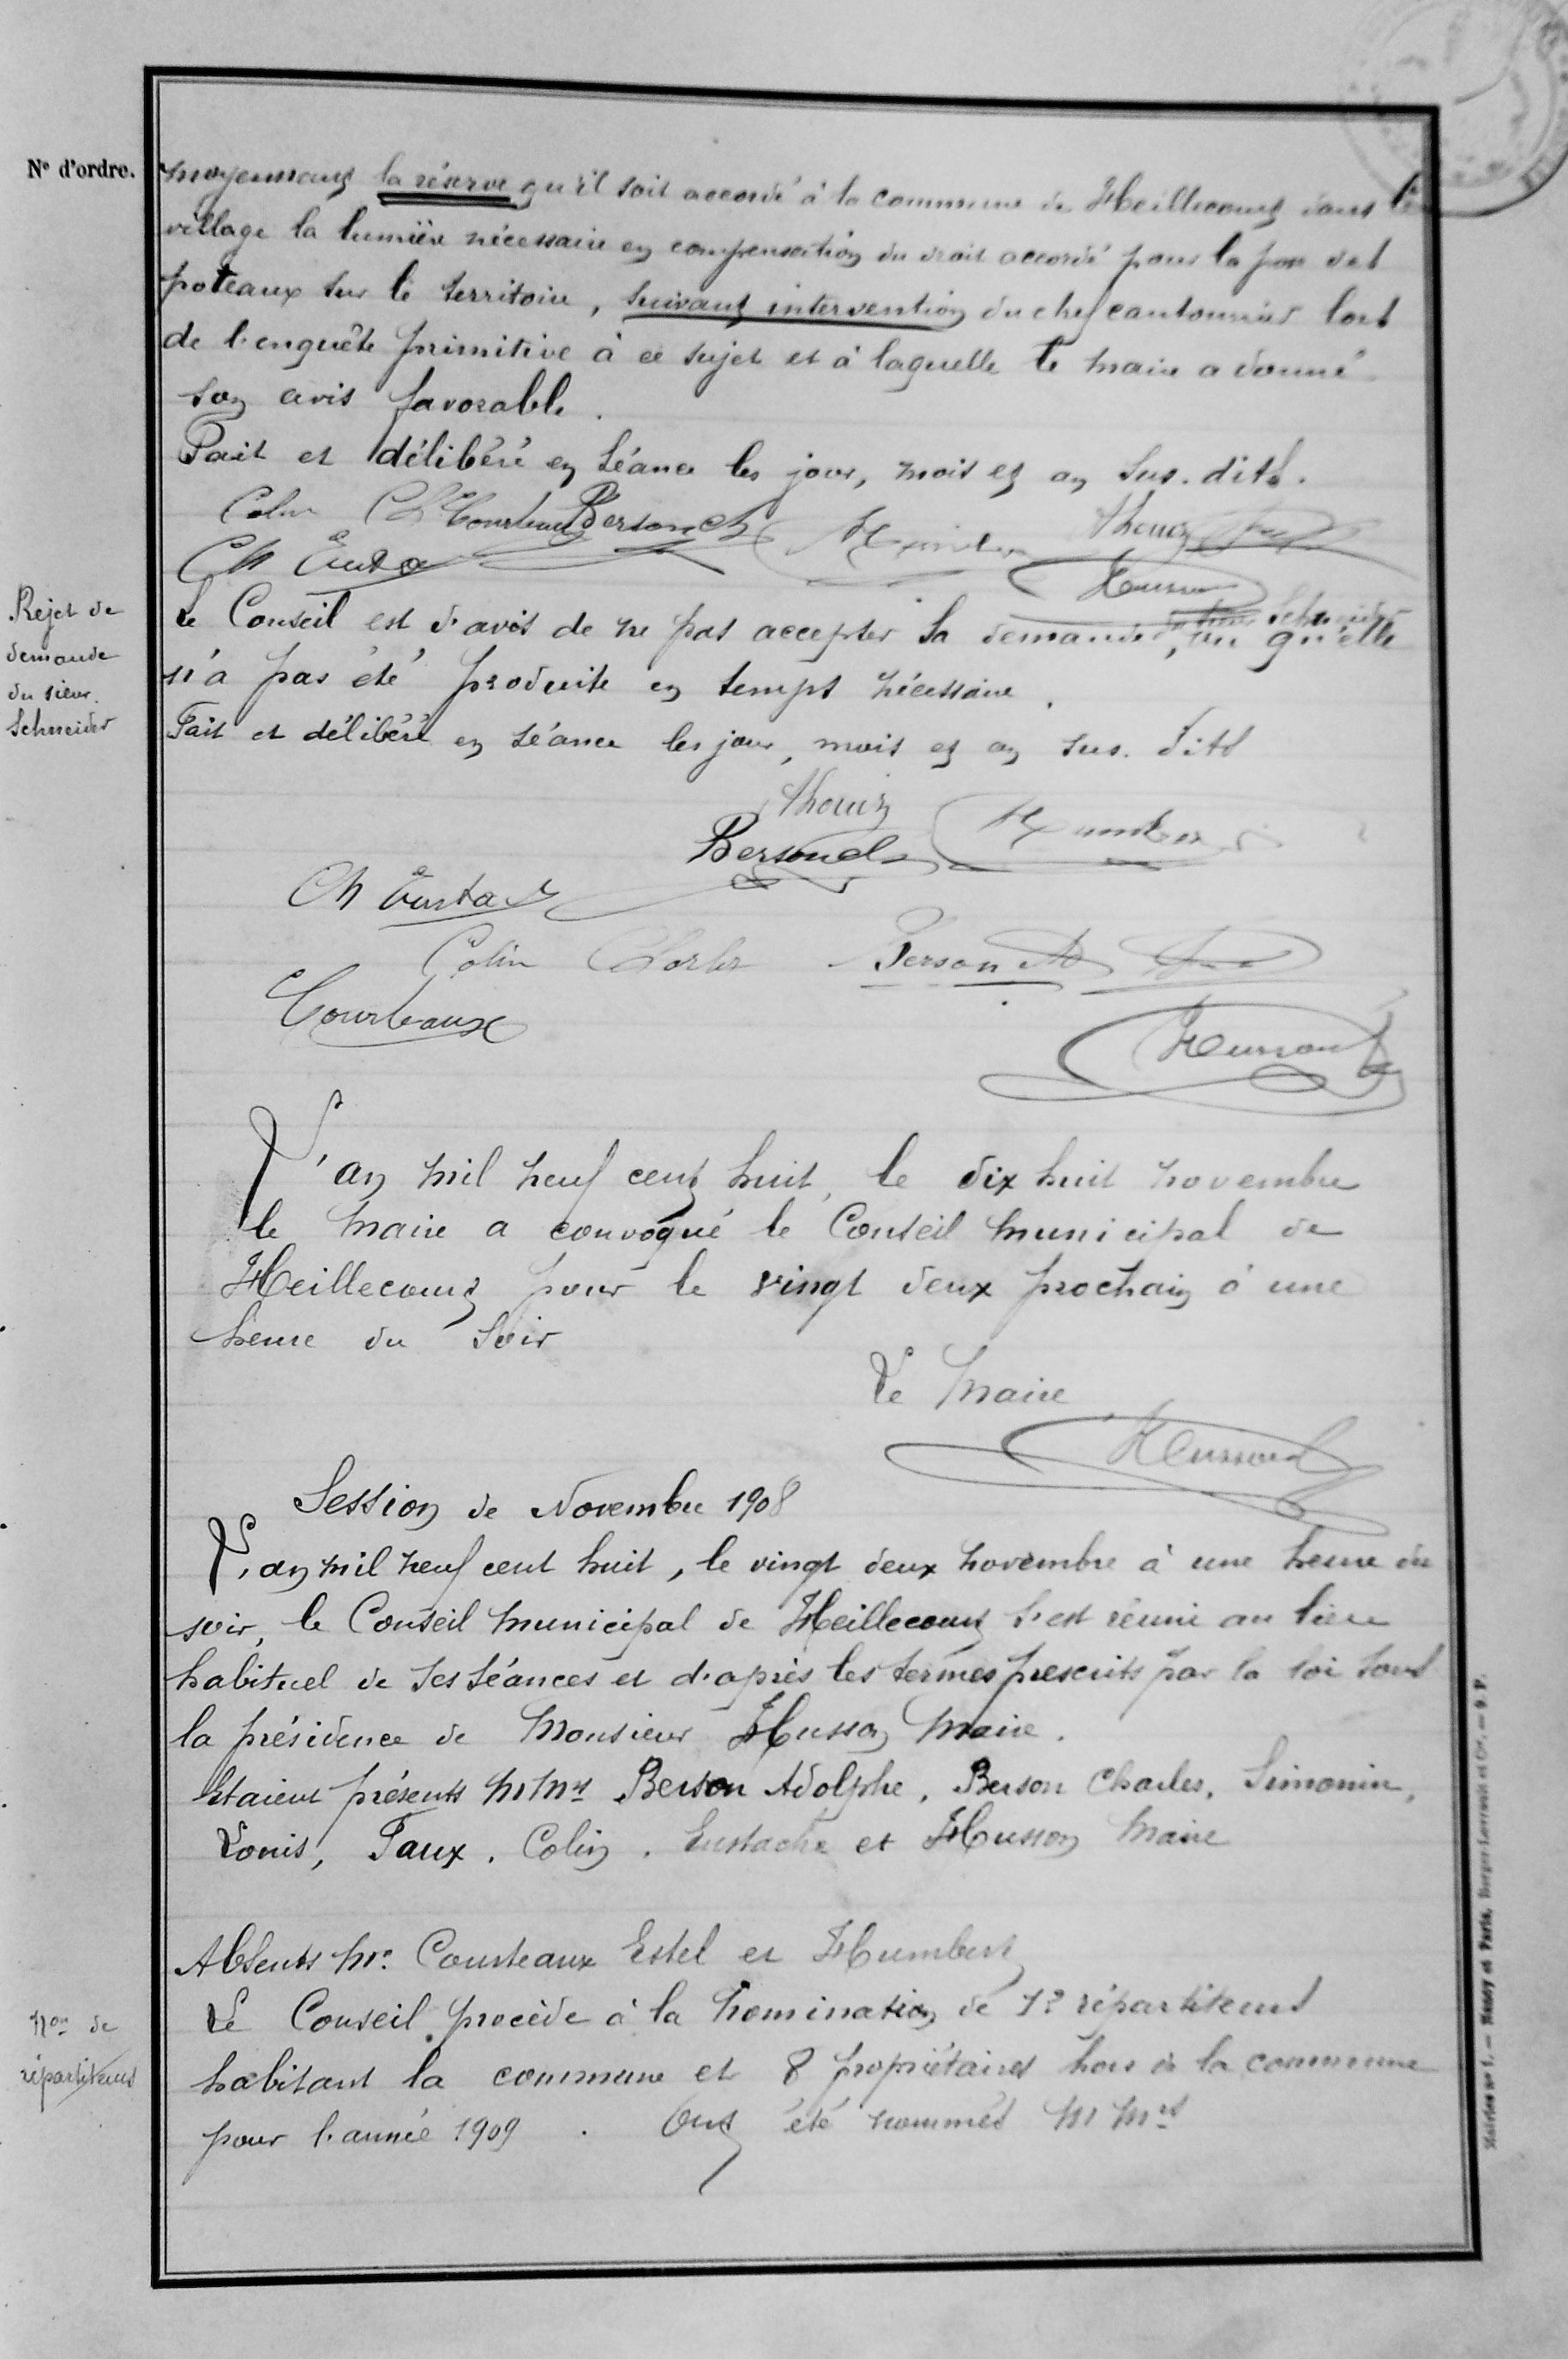 N° d'ordre.
moyennant la réserve qu'il soit accordé à la commune de Heillecourt dans le
village la lumière nécessaire en compensation du droit accordé pour la pose des
poteaux sur le territoire, suivant intervention du chef cantonnier lors
de l'enquête primitive à ce sujet et à laquelle le maire a donné
son avis favorable.
Fait et délibéré en séance les jour, mois et an sus-dits.
Colin Courteaux Berson Ch Humbert Thouis
Ch Eusta Husson
Rejet de
demande
du sieur
Schneider
Le Conseil est d'avis de ne pas accepter la demande du sieur Schneider, vu qu'elle
n'a pas été produite en temps nécessaire.
Fait et délibéré en séance les jour, mois et an sus-dits
Berson Humbert
Ch Eustac
Colin Charles Berson A
Courteaux
Husson
L'an mil neuf cent huit, le dix huit novembre
le Maire a convoqué le Conseil municipal de
Heillecourt pour le vingt deux prochain à une
heure du soir
Le Maire
Husson
Session de Novembre 1908
L'an mil neuf cent huit, le vingt deux novembre à une heure du
soir, le Conseil municipal de Heillecourt s'est réuni au lieu
habituel de ses séances et d'après les termes prescrits par la loi sous
la présidence de Monsieur Husson Maire.
Etaient présents MMrs Berson Adolphe, Berson Charles, Simonin,
Louis, Faux, Colin, Eustache et Husson Maire
Absents Mr. Courteaux Estel et Humbert
Non de
répartiteurs
Le Conseil procède à la nomination de 12 répartiteurs
habitant la commune et 8 propriétaires hors de la commune
pour l'année 1909. Ont été nommés MMrs
Mairies n° 1. — Nancy et Paris, Berger-Levrault et Cie. — 9 P.